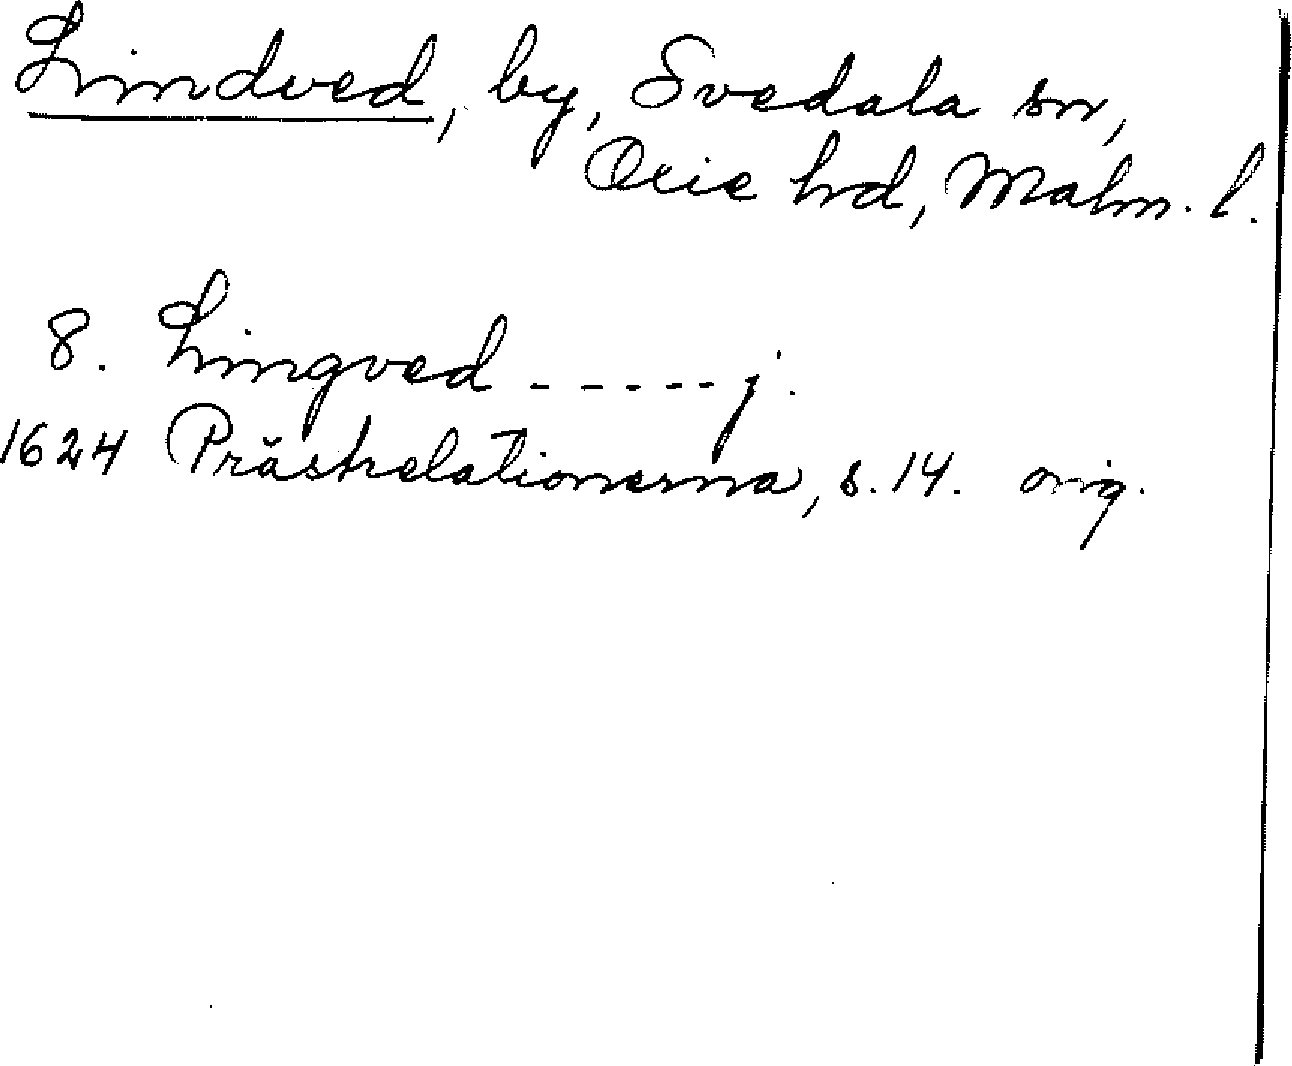 Lindved, by, Svedala sn,
Oxie hd, Malm. l.
8. Lingved ----- j.
1624 Prästrelationerna, s. 14. orig.